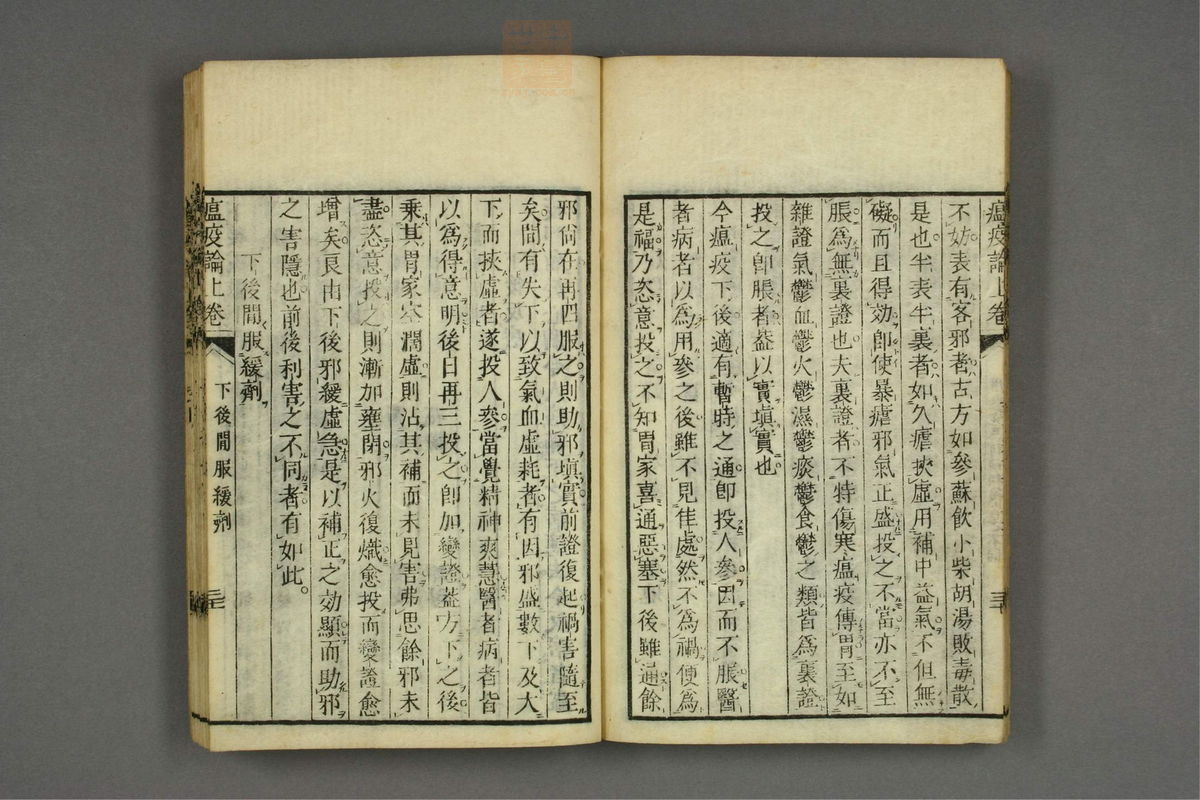 瘟疫論上卷
不妨表有客邪者古方如參蘇飲小柴胡湯敗毒散
是也半表半裏者如久瘧挾虛用補中益氣不但無
礙而且得効即使暴瘧邪氣正盛投之不當亦不至
脹爲無裏證也夫裏證者不特傷寒瘟疫傳胃至如
雜證氣鬱血鬱火鬱濕鬱痰鬱食鬱之類皆爲裏證
投之即脹者葢以實塡實也
今瘟疫下後適有暫時之通即投人參因而不脹醫
者病者以為用參之後雖不見佳處然不爲禍便爲
是福乃恣意投之不知胃家喜通惡塞下後雖通餘
邪尚在再四服之則助邪塡實前證復起禍害隨至
矣間有失下以致氣血虛耗者有因邪盛數下及大
下而挾虛者遂投人參當覺精神爽慧醫者病者皆
以爲得意明後日再三投之即加變證葢方下之後
乘其胃家乍濶虛則沾其補而未見害弗思餘邪未
盡恣意投之則漸加壅閉邪火復熾愈投而變證愈
增矣良由下後邪緩虛急是以補正之効顯而助邪
之害隱也前後利害之不同者有如此。
下後間服緩劑
瘟疫論上卷
下後間服緩劑